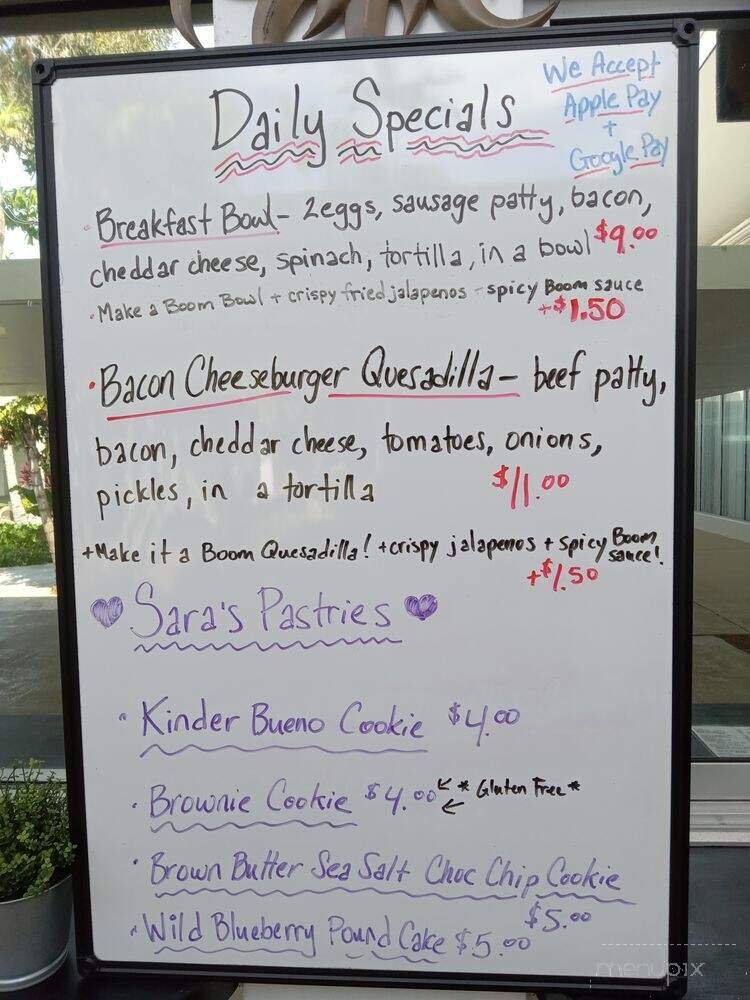 Daily Specials
We Accept
Apple Pay
+
Google Pay
· Breakfast Bowl - 2eggs, sausage patty, bacon,
cheddar cheese, spinach, tortilla, in a bowl $9.00
· Make a Boom Bowl + crispy fried jalapenos - spicy Boom sauce
+$1.50
· Bacon Cheeseburger Quesadilla - beef patty,
bacon, cheddar cheese, tomatoes, onions,
pickles, in a tortilla $11.00
+Make it a Boom Quesadilla! +crispy jalapenos + spicy Boom
sauce!
+$1.50
Sara's Pastries
· Kinder Bueno Cookie $4.00
· Brownie Cookie $4.00 * Gluten Free *
· Brown Butter Sea Salt Choc Chip Cookie
$5.00
· Wild Blueberry Pound Cake $5.00
menupix